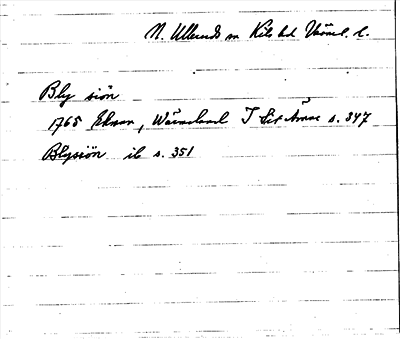 N. Ulleruds sn Kils hd Värml. l.
Bly siön
1765 Ekman, Wärmeland I sit ämne s. 347
Blysiön ib s. 351